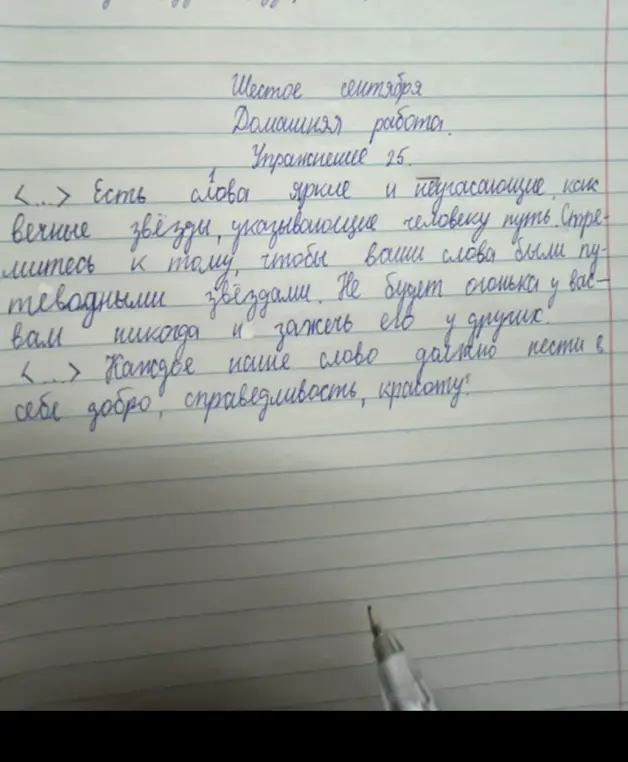 Шестое сентября
Домашняя работа.
Упражнение 25.
<...> Есть слова яркие и неугасающие, как
вечные звёзды, указывающие человеку путь. Стре-
митесь к тому, чтобы ваши слова были пу-
теводными звёздами. Не будет огонька у вас-
вам никогда и зажечь его у других.
<...> Каждое наше слово должно нести в
себе добро, справедливость, красоту.